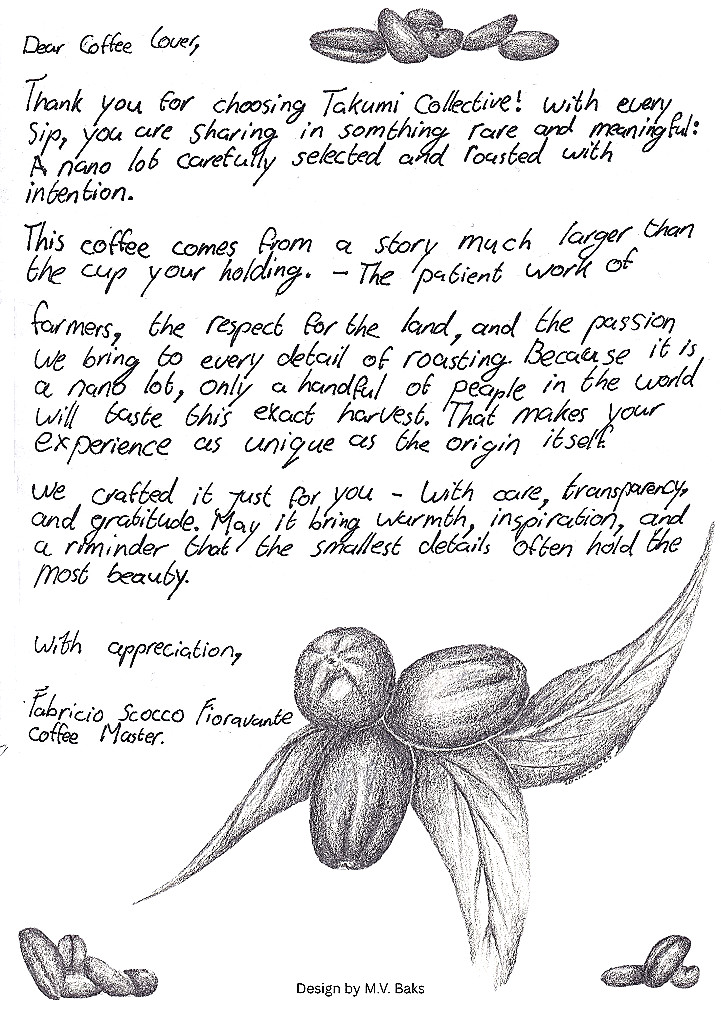 Dear Coffee Lover,
Thank you for choosing Takumi Collective! with every
sip, you are sharing in somthing rare and meaningful:
A nano lot carefully selected and roasted with
intention.
This coffee comes from a story much larger than
the cup your holding. – The patient work of
farmers, the respect for the land, and the passion
we bring to every detail of roasting. Because it is
a nano lot, only a handful of people in the world
will taste this exact harvest. That makes your
experience as unique as the origin itself.
we crafted it just for you – with care, transparency,
and gratitude. May it bring warmth, inspiration, and
a riminder that the smallest details often hold the
most beauty.
with appreciation,
Fabricio Scocco Fioravante
Coffee Master.
Design by M.V. Baks